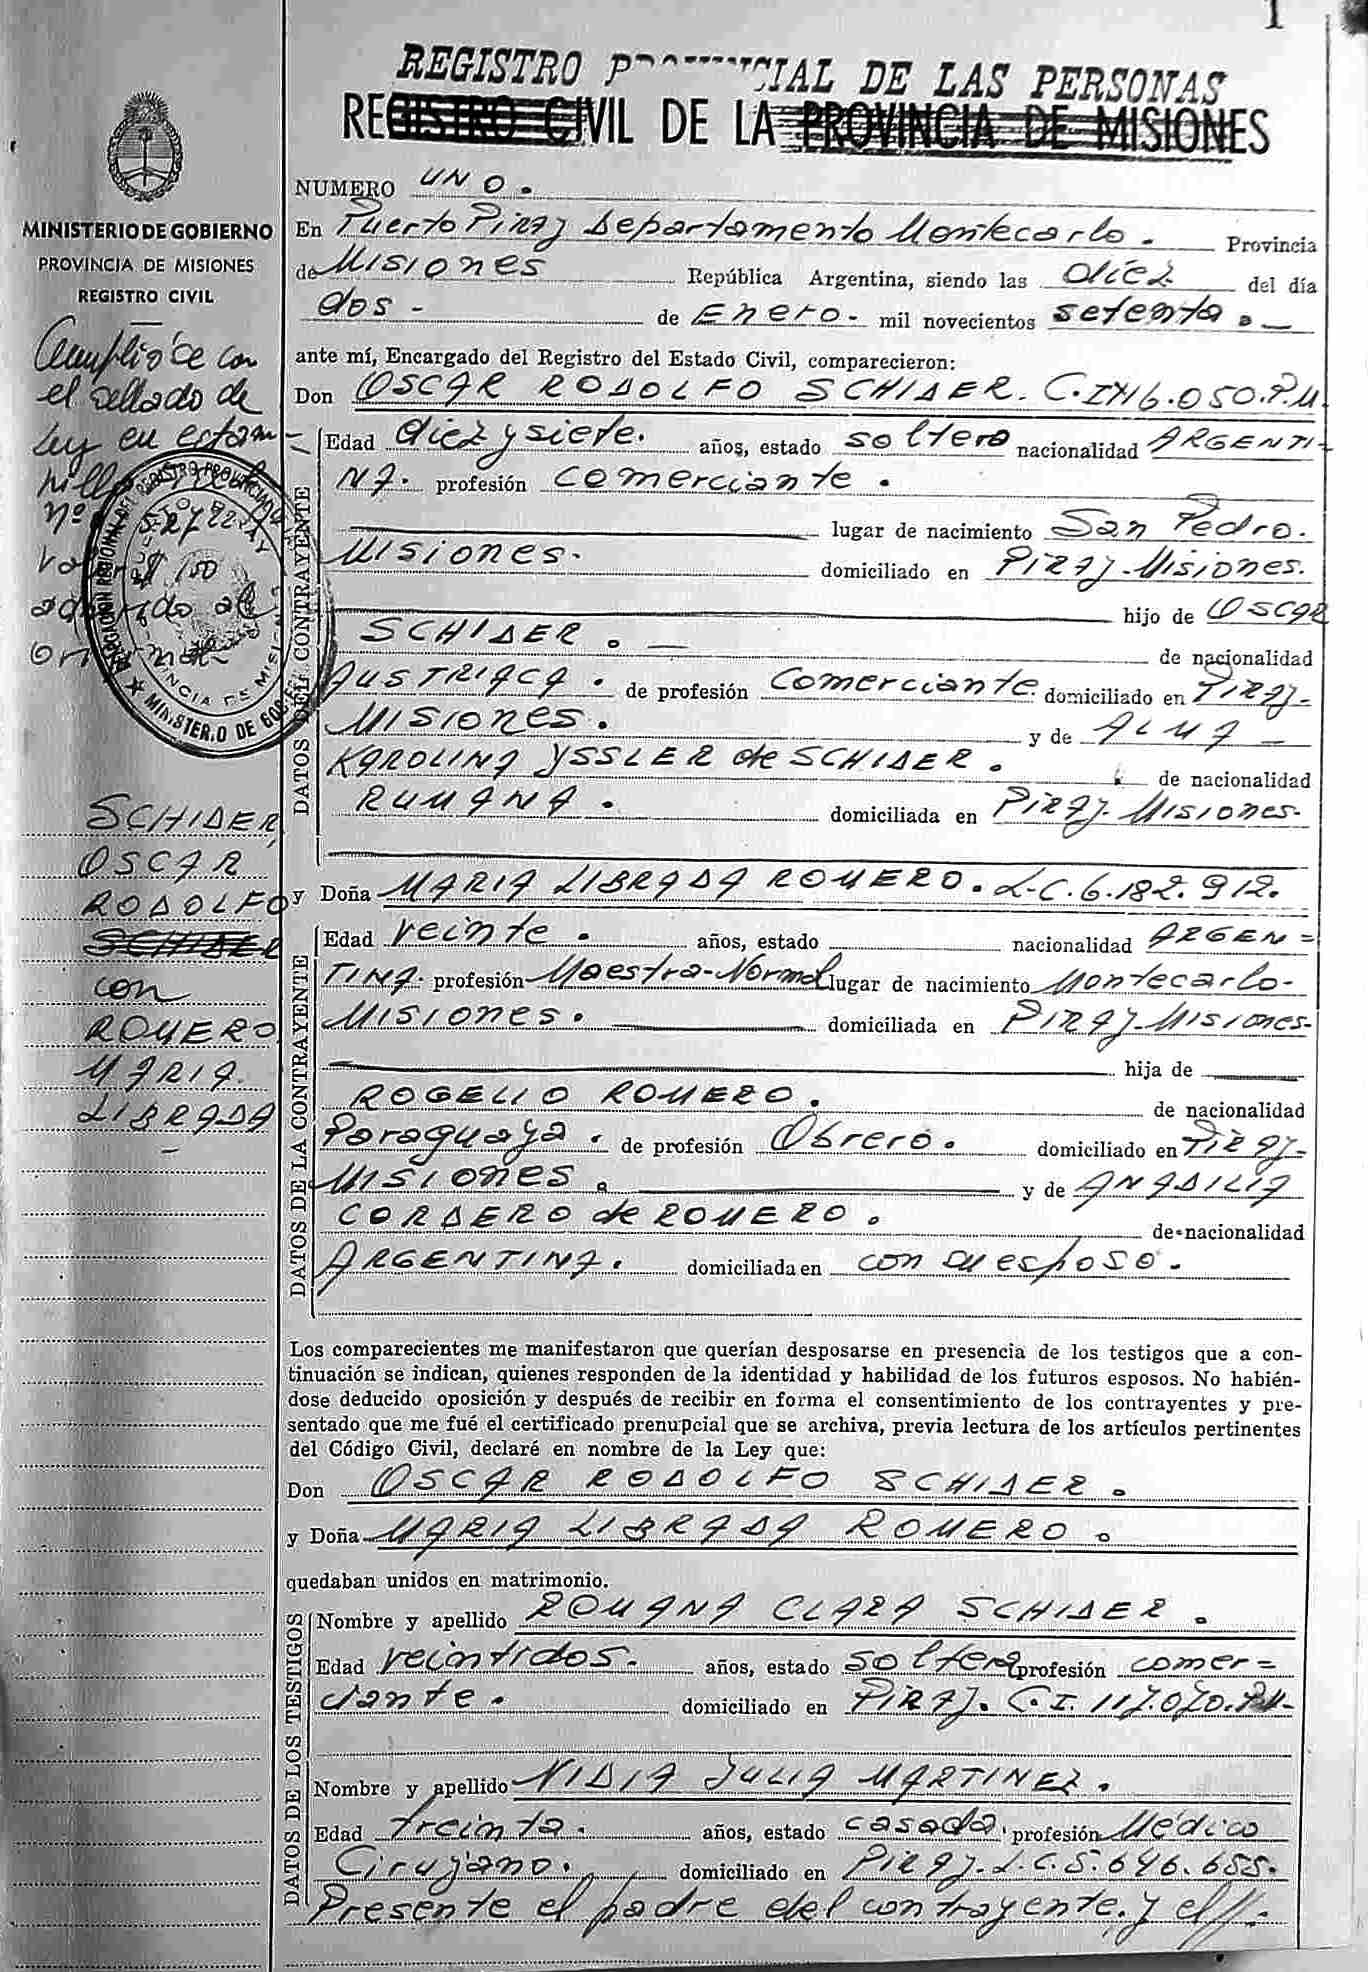 1
REGISTRO PROVINCIAL DE LAS PERSONAS
REGISTRO CIVIL DE LA PROVINCIA DE MISIONES
MINISTERIO DE GOBIERNO
PROVINCIA DE MISIONES
REGISTRO CIVIL
Cumplióse con
el sellado de
Ley en estam-
pilla
nº
150
SCHIDER,
OSCAR
RODOLFO
SCHIDER
con
ROMERO
MARIA
LIBRADA
NUMERO UNO.
En Puerto Piray Departamento Montecarlo. Provincia
de Misiones República Argentina, siendo las diez del día
dos - de Enero - mil novecientos setenta. -
ante mí, Encargado del Registro del Estado Civil, comparecieron:
Don OSCAR RODOLFO SCHIDER. C.I. 116.050.P.M.
DATOS DEL CONTRAYENTE
Edad diez y siete. años, estado soltero nacionalidad ARGENTI-
NA. profesión comerciante.
lugar de nacimiento San Pedro.
Misiones. domiciliado en Piray-Misiones.
hijo de OSCAR
SCHIDER. — de nacionalidad
AUSTRIACA. de profesión Comerciante. domiciliado en Piray-
Misiones. y de ALMA -
KAROLINA YSSLER de SCHIDER. de nacionalidad
RUMANA. domiciliada en Piray-Misiones-
y Doña MARIA LIBRADA ROMERO. L.C. 6.182.912.
DATOS DE LA CONTRAYENTE
Edad veinte. años, estado nacionalidad ARGEN=
TINA. profesión Maestra-Normal lugar de nacimiento Montecarlo-
Misiones. domiciliada en Piray-Misiones-
hija de
ROGELIO ROMERO. de nacionalidad
Paraguaya. de profesión Obrero. domiciliado en Piray-
Misiones. y de ANADILIA
CORDERO de ROMERO. de nacionalidad
ARGENTINA. domiciliada en con su esposo.
Los comparecientes me manifestaron que querían desposarse en presencia de los testigos que a con-
tinuación se indican, quienes responden de la identidad y habilidad de los futuros esposos. No habién-
dose deducido oposición y después de recibir en forma el consentimiento de los contrayentes y pre-
sentado que me fué el certificado prenupcial que se archiva, previa lectura de los artículos pertinentes
del Código Civil, declaré en nombre de la Ley que:
Don OSCAR RODOLFO SCHIDER.
y Doña MARIA LIBRADA ROMERO.
quedaban unidos en matrimonio.
DATOS DE LOS TESTIGOS
Nombre y apellido ROMANA CLARA SCHIDER.
Edad veintidos. años, estado soltera profesión comer=
ciante. domiciliado en Piray. C.I. 117.070.P.M-
Nombre y apellido NIDIA JULIA MARTINEZ.
Edad treinta. años, estado casada. profesión Médico
Cirujano. domiciliado en Piray-L.C.5.646.655.
Presente el padre del contrayente. y el//.-